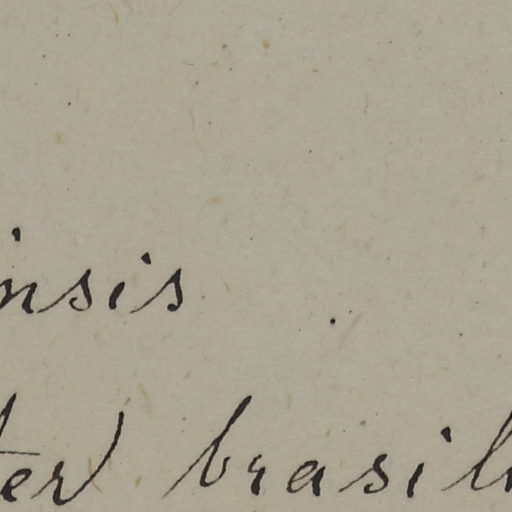 insis
ter brasil